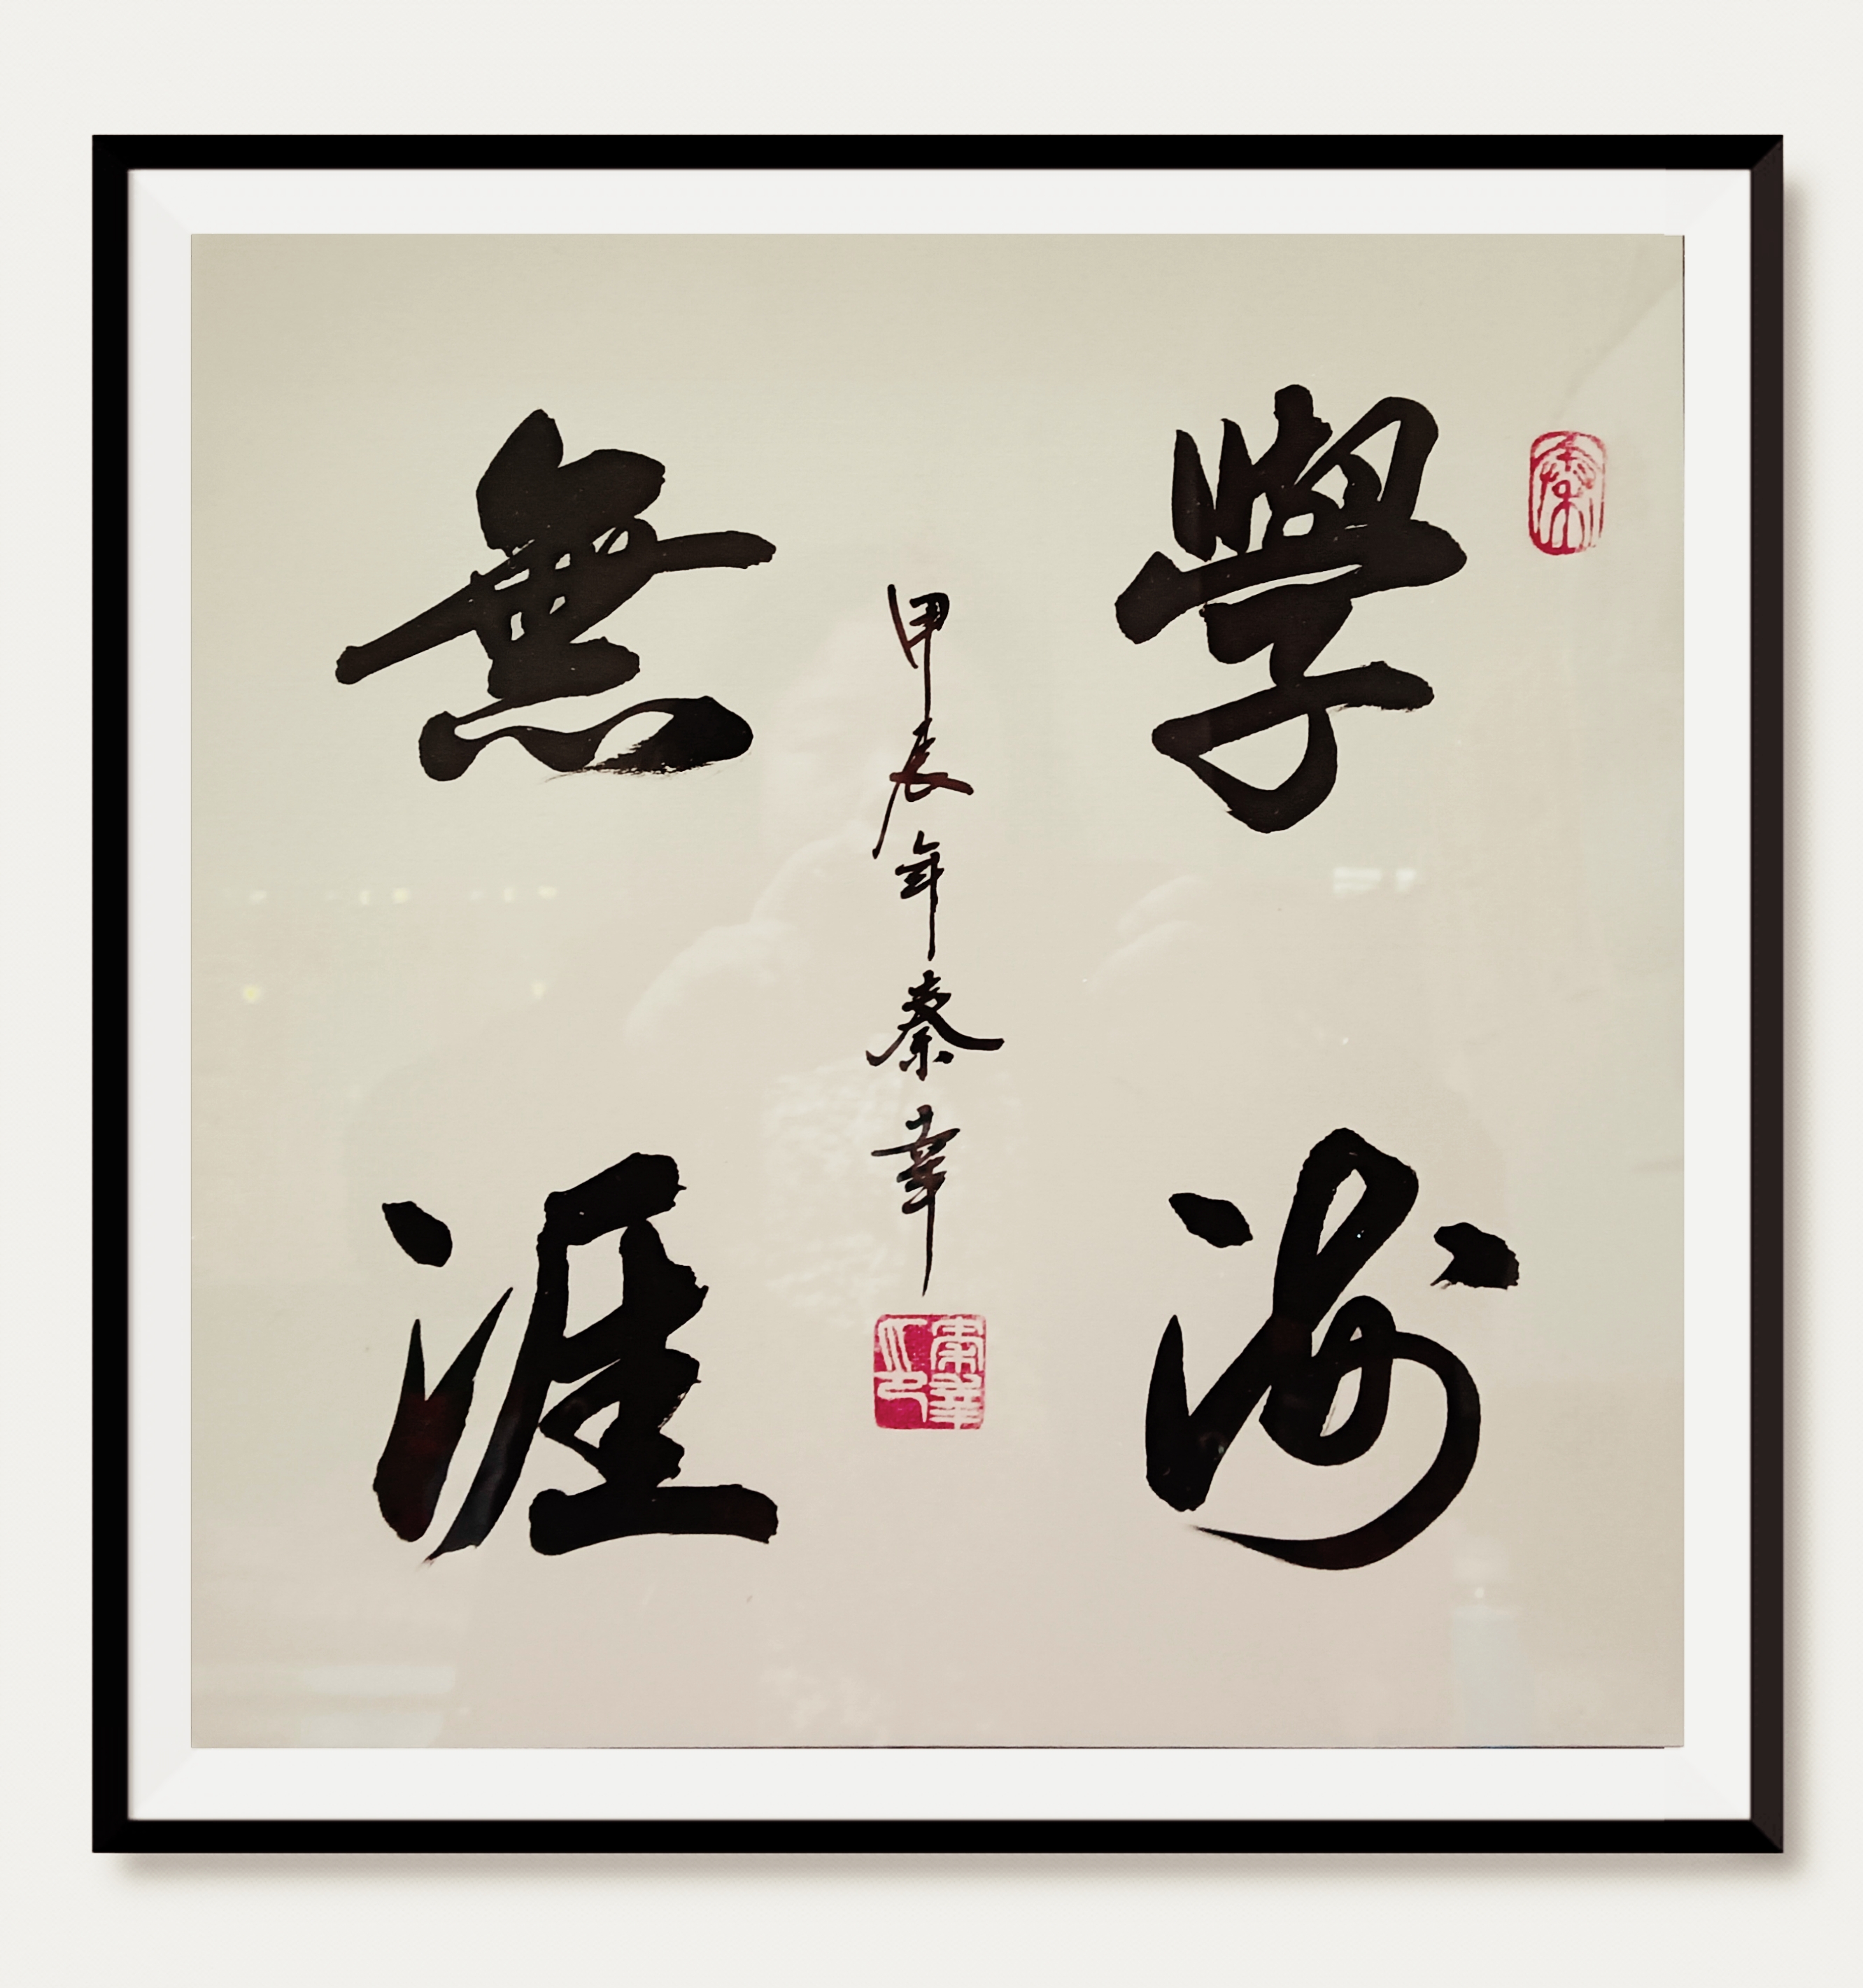 學海
無涯
甲辰年秦幸
秦